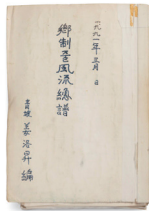 一九九一年 三月 日
鄕制줄風流總譜
姜洛昇 編